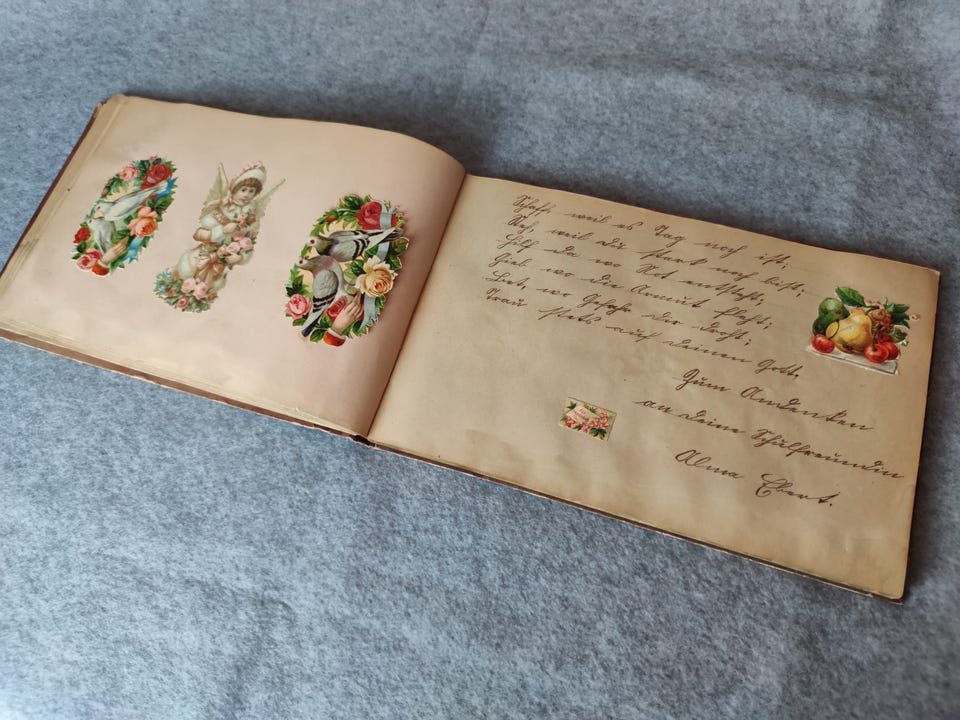 Schaff, weil es Tag noch ist;
Steh, weil du stark noch bist;
Hilf da wo Not entsteht;
Gieb wo die Armut fleht;
Leit, wo Gefahr dir droht;
Trau stets auf deinen Gott.
Zum Andenken
an deine Schulfreundin
Alma Ebert.